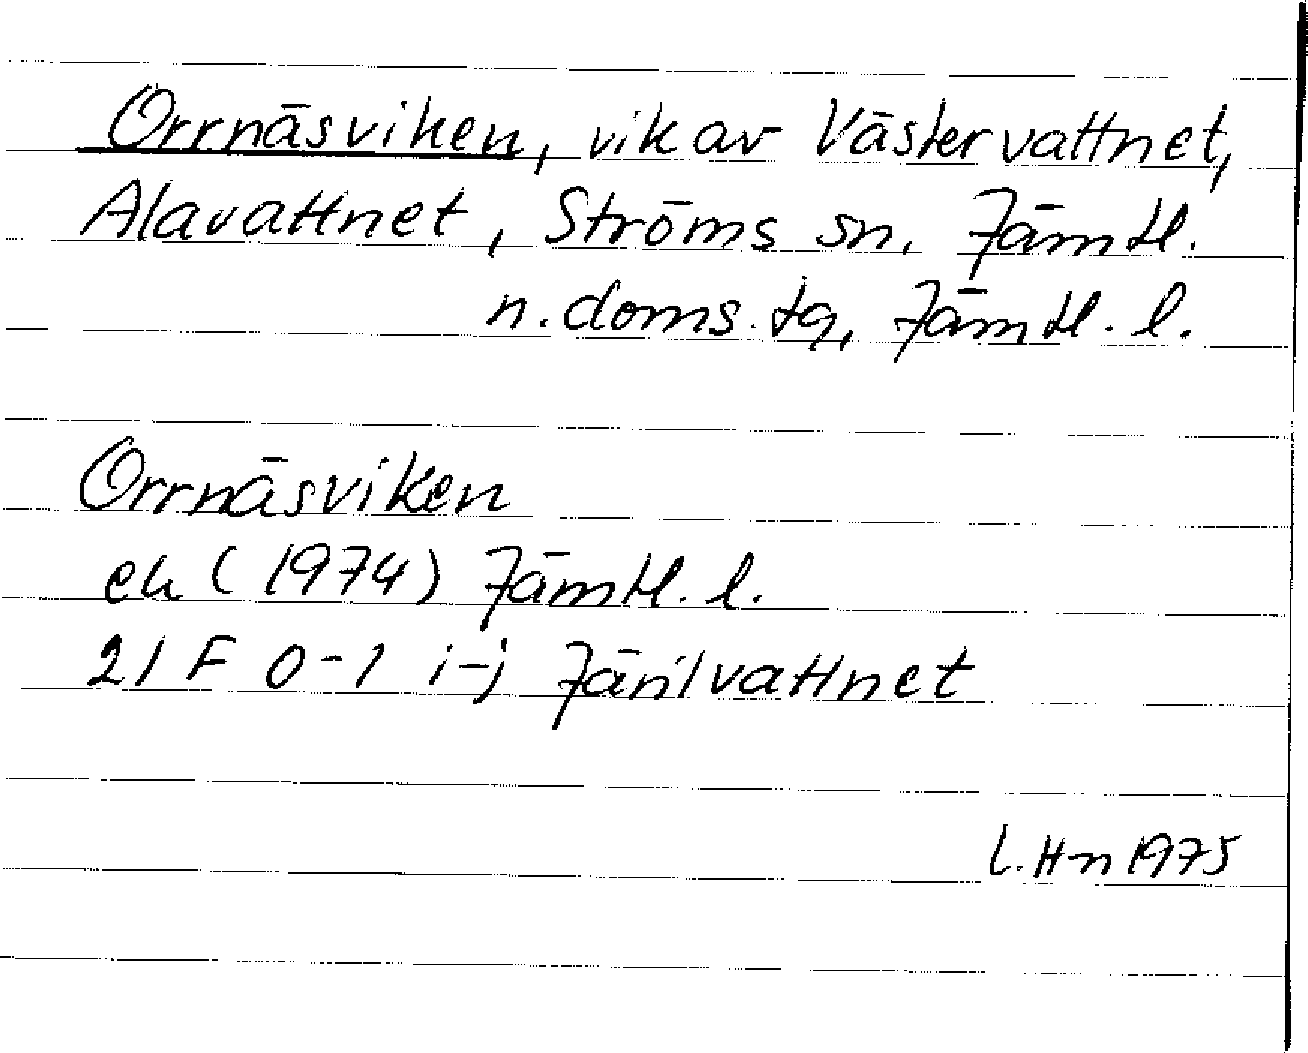 Orrnäsviken, vik av Västervattnet,
Alavattnet, Ströms sn, Jämtl.
n. doms. tg, Jämtl. l.
Orrnäsviken
ek (1974) Jämtl. l.
21 F 0-1 i-j Järilvattnet
L. H-n 1975